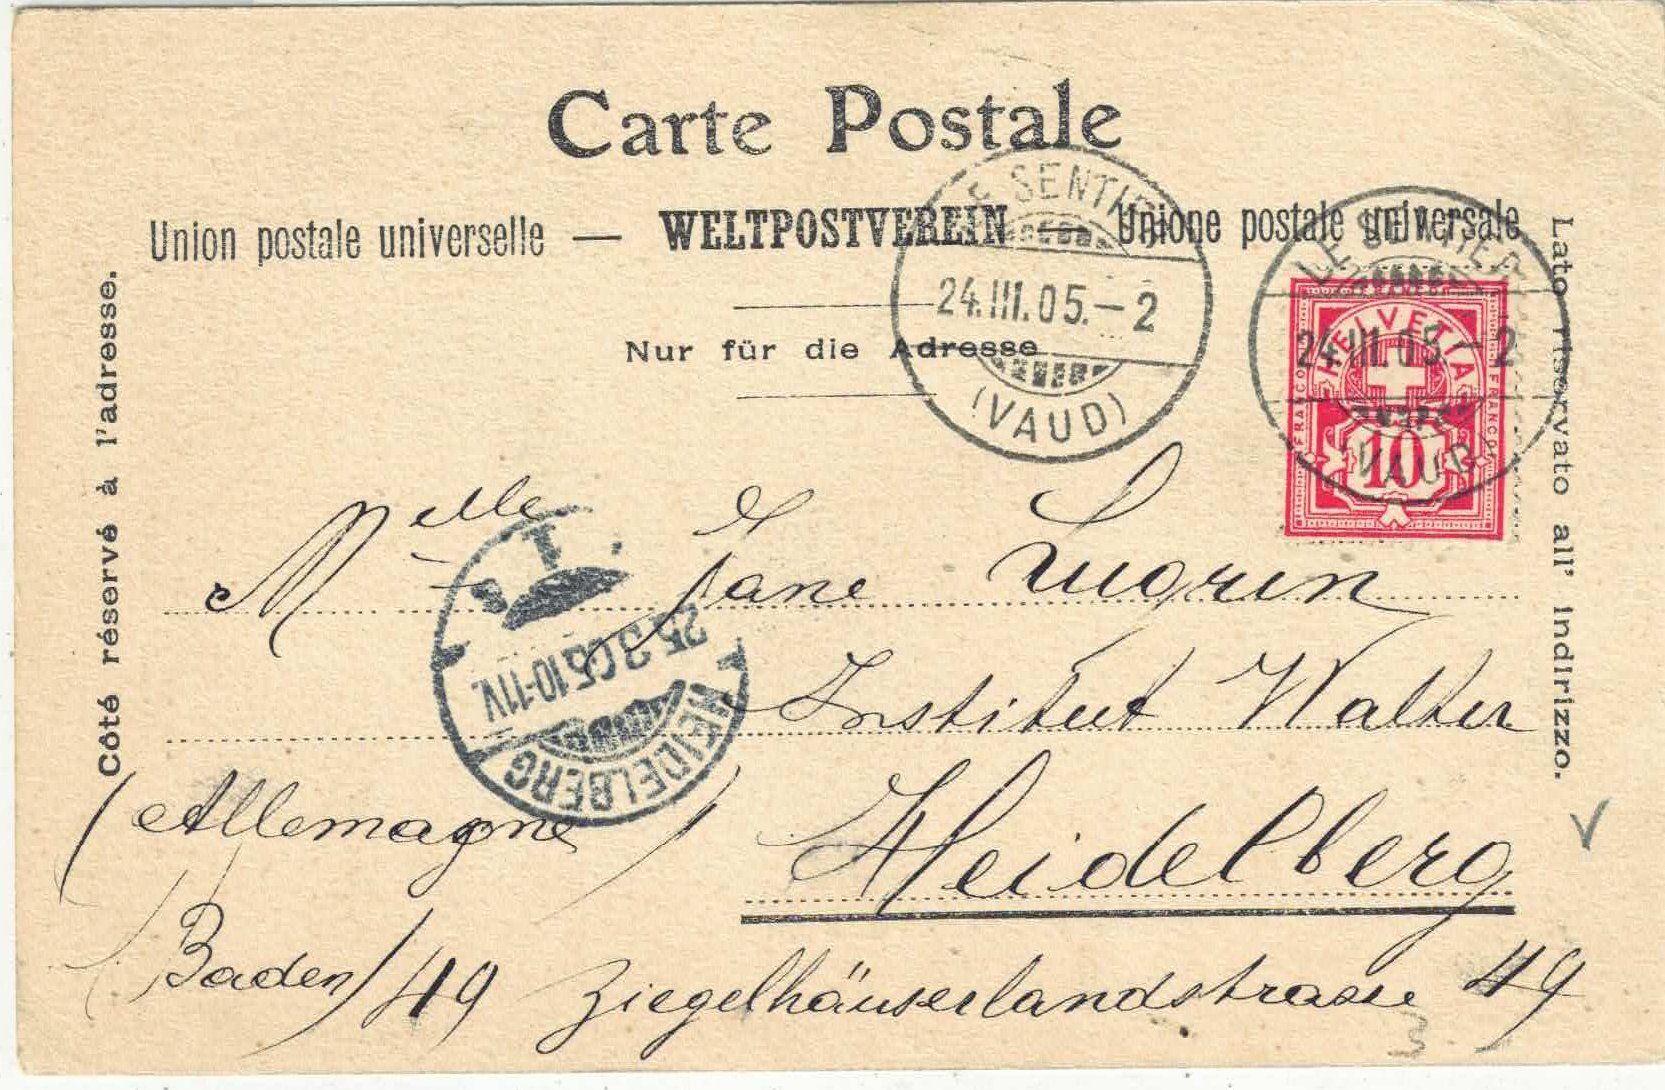 Carte Postale
Union postale universelle — WELTPOSTVEREIN Unione postale universale
Nur für die Adresse
Côté réservé à l'adresse.
Lato riservato all' indirizzo.
LE SENTIER
24.III.05.–2
(VAUD)
LE SENTIER
24.III.05.–2
(VAUD)
HELVETIA
FRANCO
FRANCO
10
Melle Jane Lugrin
Institut Walter
(Allemagne) Heidelberg
Baden) 49 Ziegelhäuserlandstrasse 49
HEIDELBERG
25.3.05.10-11V.
1